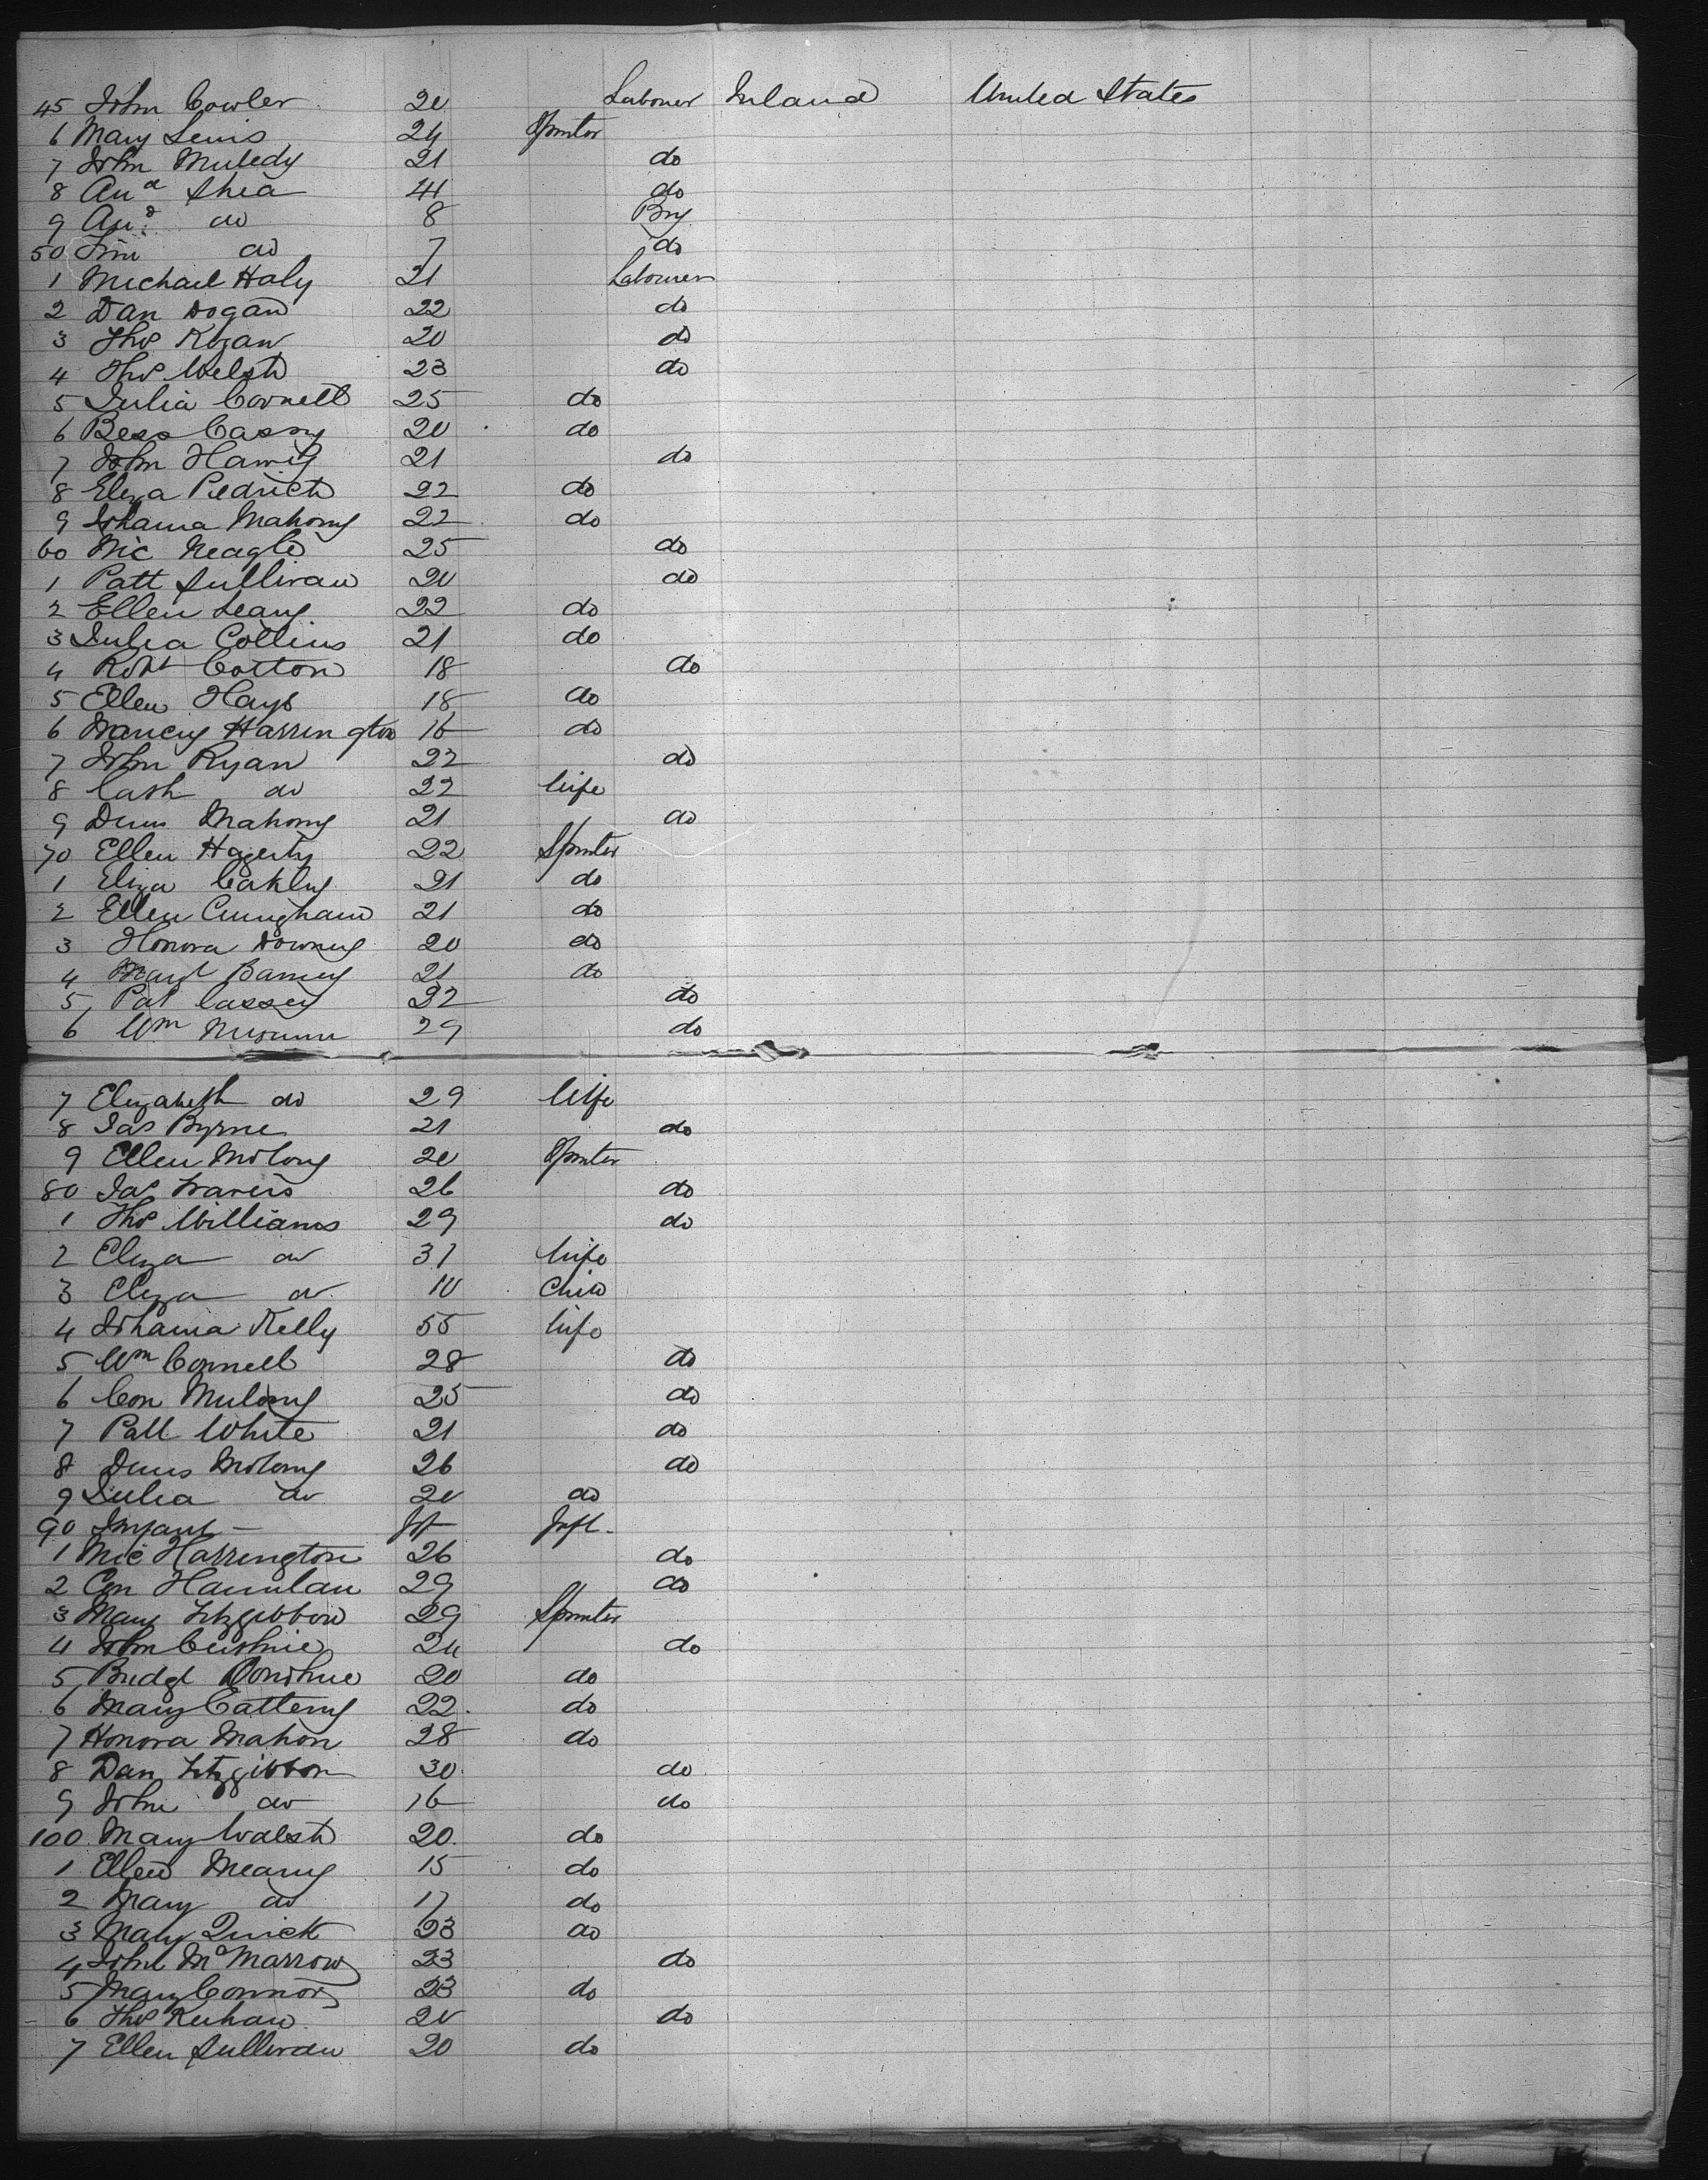 45 John Cowler 20 Labourer Ireland United States
6 Mary Lewis 24 Spinster
7 John Muledy 21 do
8 And Shea 44 do
9 And do 8 Boy
50 Tim do 7 do
1 Michael Haly 21 Labourer
2 Dan Dogan 22 do
3 Thos Rogan 20 do
4 Thos Welsh 23 do
5 Julia Connell 25 do
6 Bess Cassy 20 do
7 John 21 do
8 Eliza Pedrick 22 do
9 Johanna Mahony 22 do
60 Mic Neagle 25 do
1 Patt Sullivan 20 do
2 Ellen Leary 22 do
3 Julia Collins 21 do
4 Robt Cotton 18 do
5 Ellen Hays 18 do
6 Nancy Harrington 16 do
7 John Ryan 22 do
8 Cath do 22 Wife
9 Denis Mahony 21 do
70 Ellen Hagerty 22 Spinster
1 Eliza Oakley 21 do
2 Ellen Cunngham 21 do
3 Honora Downey 20 do
4 Margt 21 do
5 Pat Cassey 22 do
6 Wm 29 do
7 Elizabeth do 29 Wife
8 Jas Byrne 21 do
9 Ellen Molony 20 Spinster
80 Jas Travers 26 do
1 Thos Williams 29 do
2 Eliza do 31 Wife
3 Eliza do 10 Child
4 Johanna Kelly 55 Wife
5 Wm Connell 28 do
6 Con Mulony 25 do
7 Patt White 21 do
8 Denis Molony 26 do
9 Julia do 20 do
90 Infant - Inft Inft.
1 Mic Harrington 26 do
2 Con Hannlan 29 do
3 Mary Fitzgibbon 29 Spinster
4 John Cushnie 24 do
5 Bridgt Donohue 20 do
6 Mary Catterny 22 do
7 Honora Mahon 28 do
8 Dan Fitzgibbon 30 do
9 John do 16 do
100 Mary Walsh 20 do
1 Ellen Meany 15 do
2 Mary do 17 do
3 Mary Quick 23 do
4 John McMarrow 23 do
5 Mary Connors 23 do
6 Thos Keehan 20 do
7 Ellen Sullivan 20 do